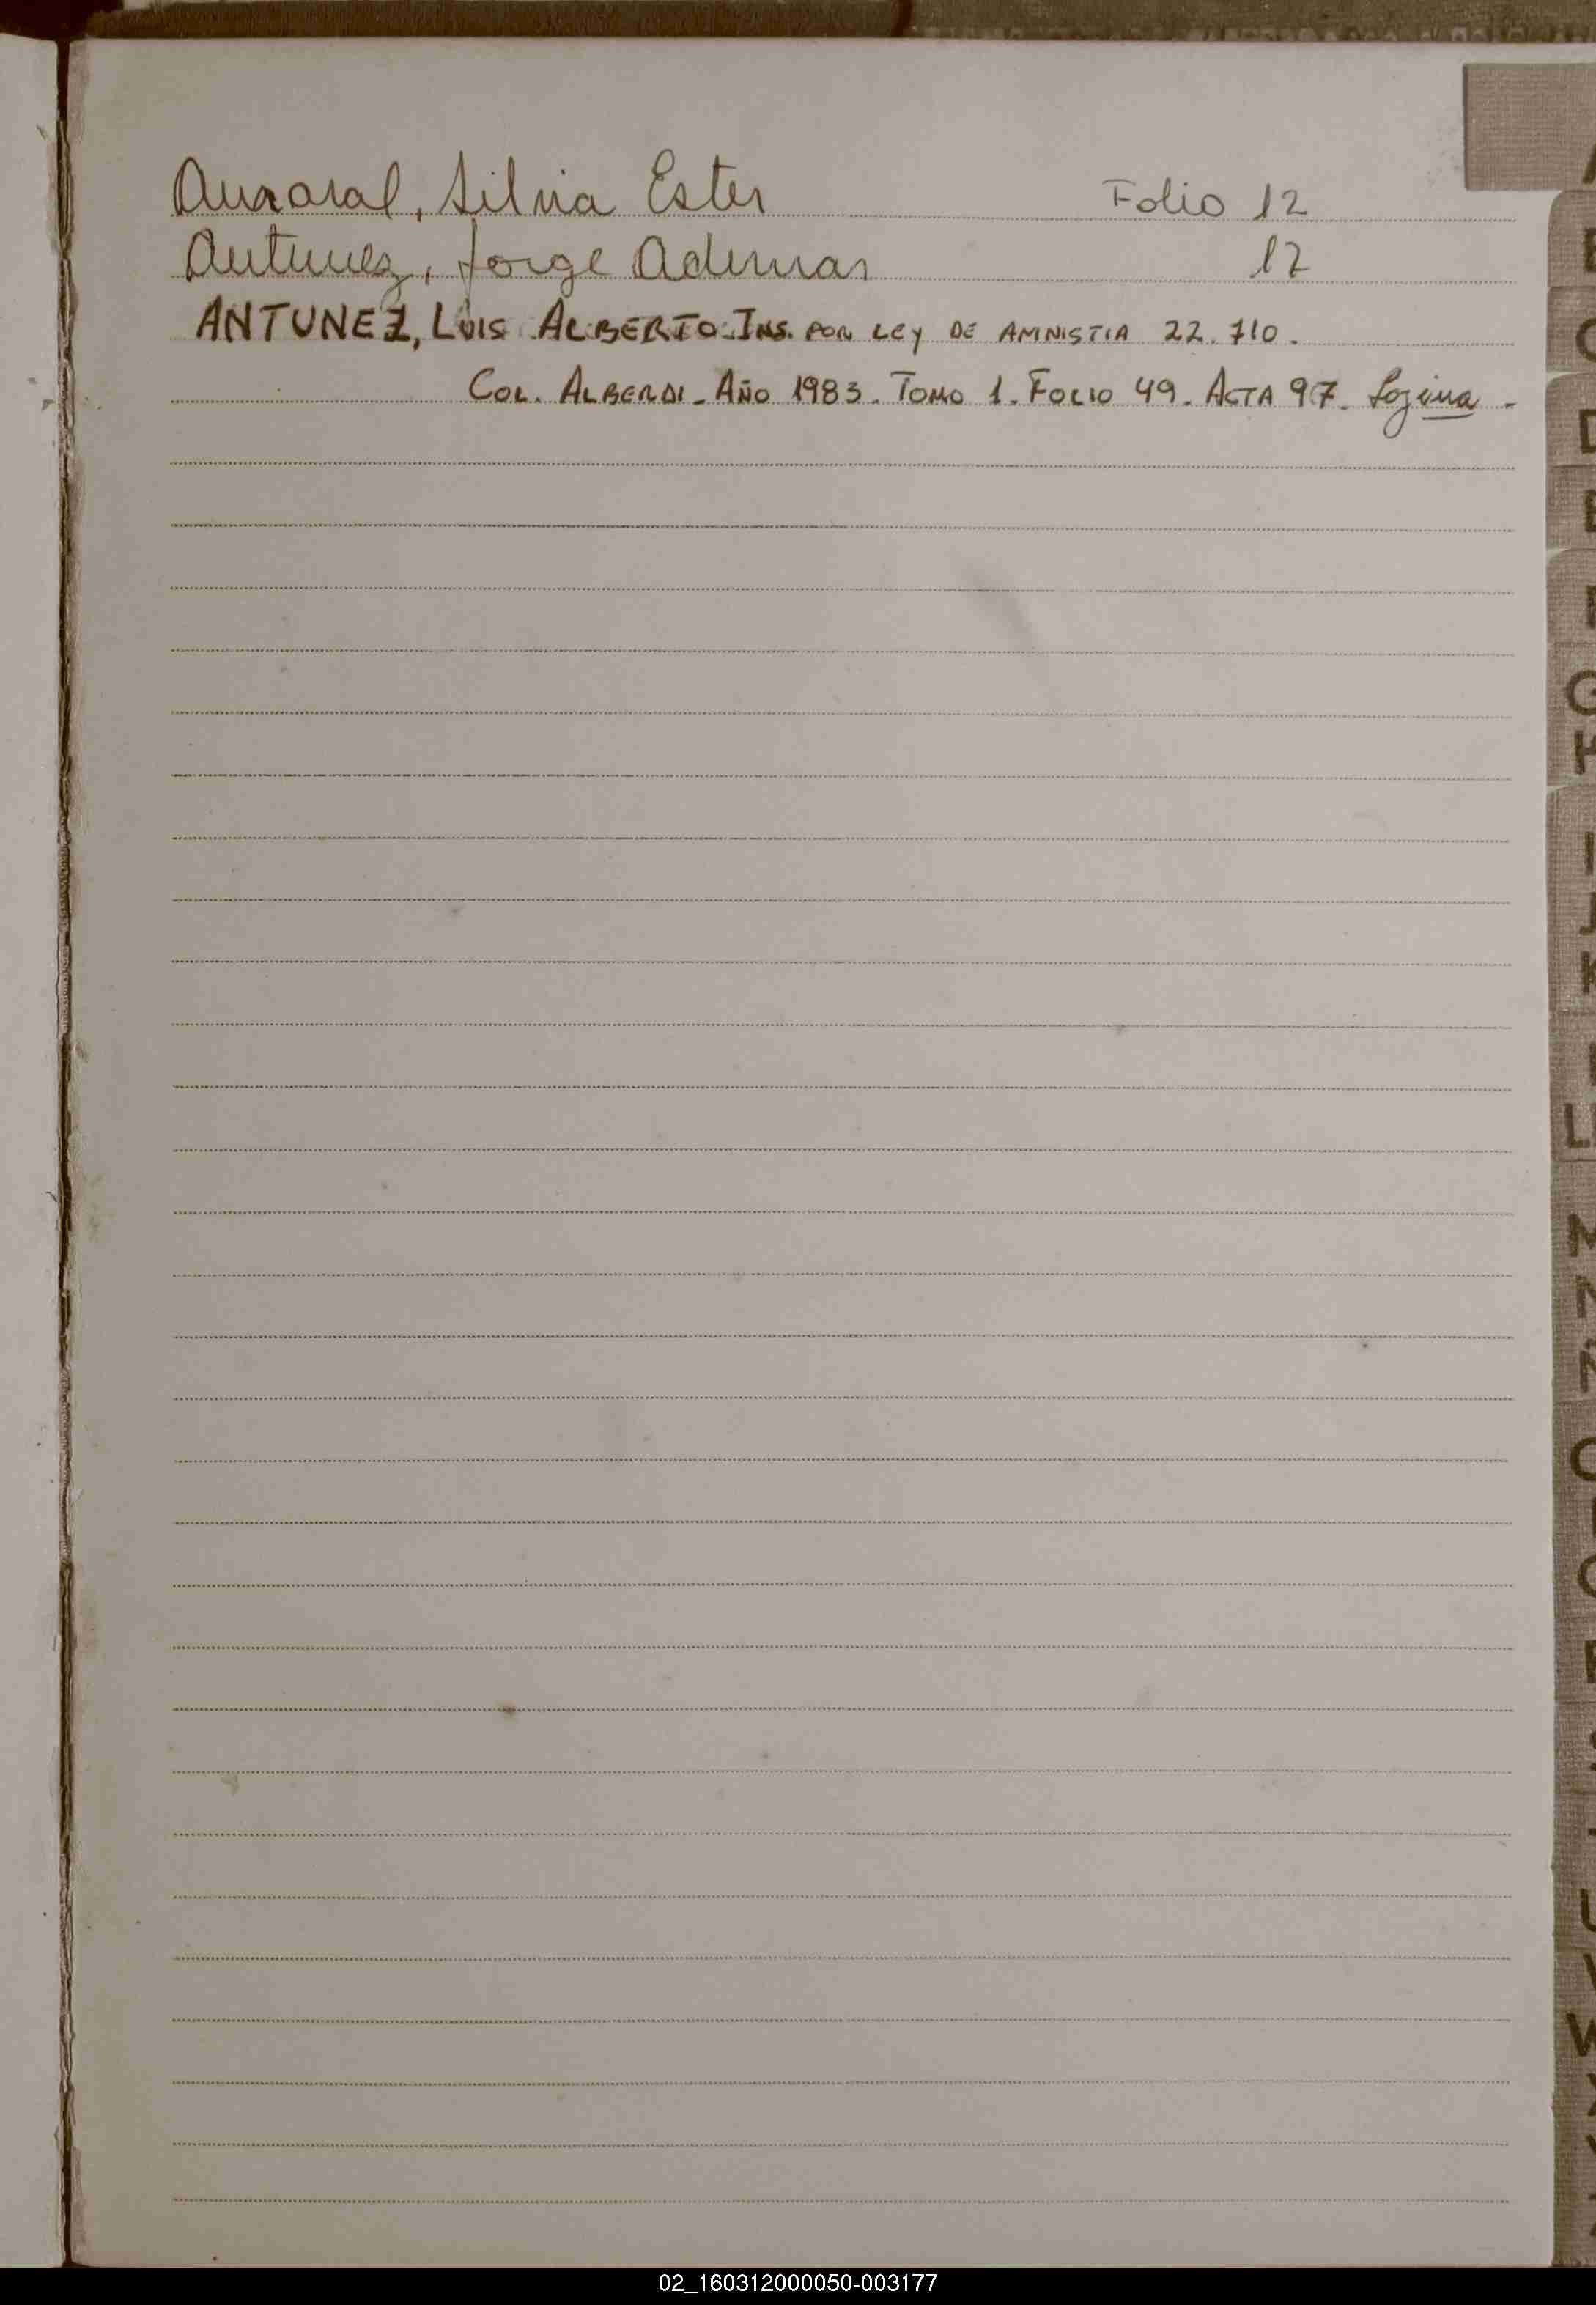 Amaral, Silvia Ester Folio 12
Antunez, Jorge Ademar 17
ANTUNEZ, LUIS ALBERTO. INS. POR LEY DE AMNISTIA 22.710.
COL. ALBERDI - AÑO 1983. TOMO 1. FOLIO 49. ACTA 97.
02_160312000050-003177